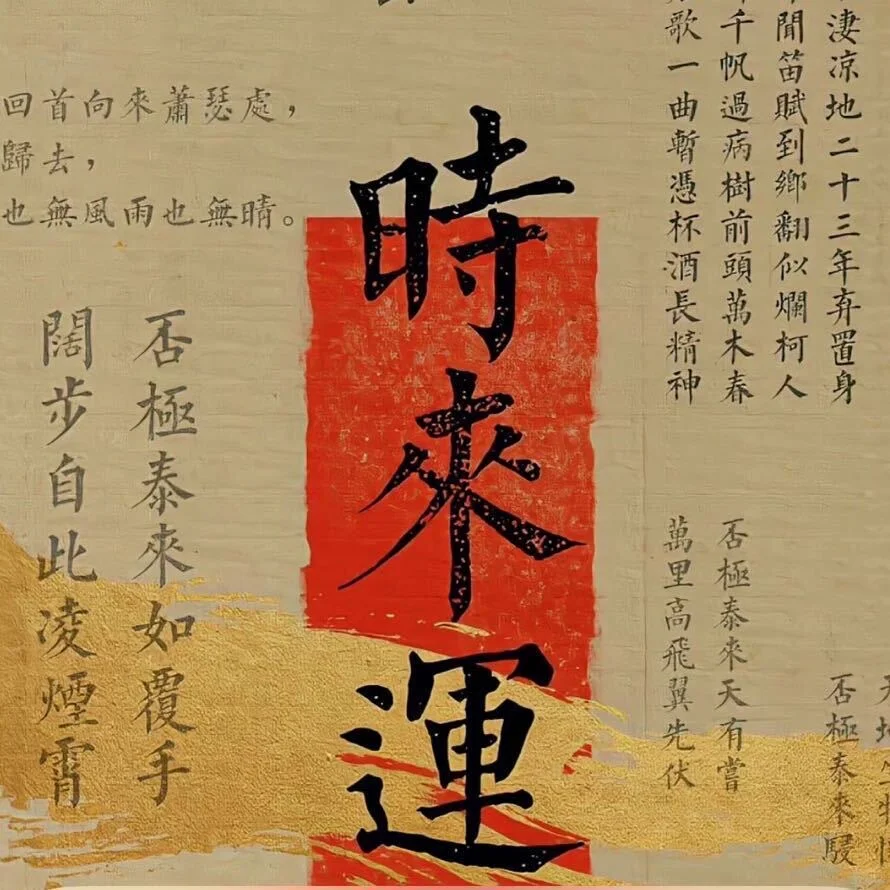 淒凉地二十三年弃置身
聞笛賦到鄉翻似爛柯人
千帆過病樹前頭萬木春
歌一曲暫憑杯酒長精神
時來運
回首向來蕭瑟處，
歸去，
也無風雨也無晴。
否極泰來如覆手
闊步自此凌煙霄
否極泰來
否極泰來天有嘗
萬里高飛翼先伏